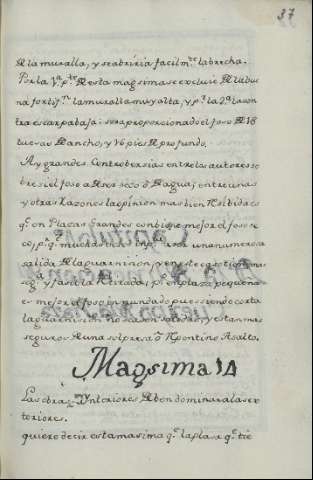 37
de la muralla, y se abriria facilm.te la brecha.
Por la 1.a p.te de esta magsima se excluie de la bue
na fortif.on la muralla muy alta, y p.r la 2.a la con
tra escarpa baja: sera proporcionado el foso de 18
tuesas de ancho, y 16 pies de profundo.
Ay grandes Controbersias entre los autores so
bre si el foso a de ser seco ô de agua; entre unas
y otras razones la opinion mas bien recibida es
q.e en Placas Grandes conbiene mejor el foso se
co, p.r q.e muchas
salida de la guarnicion, y en este caso tiene mas
seg.a y facil la retirada; p.o en plaza pequeña
es mejor el foso inundado pues siendo corta
la guarnicion no hacen salidas, y estan mas
seguros de una sorpresa ô repentino Asalto.
Magsima 14
Las obras Ynteriores deben dominar a las ex
teriores.
quiere decir esta masima q.e la plasa q.e tie